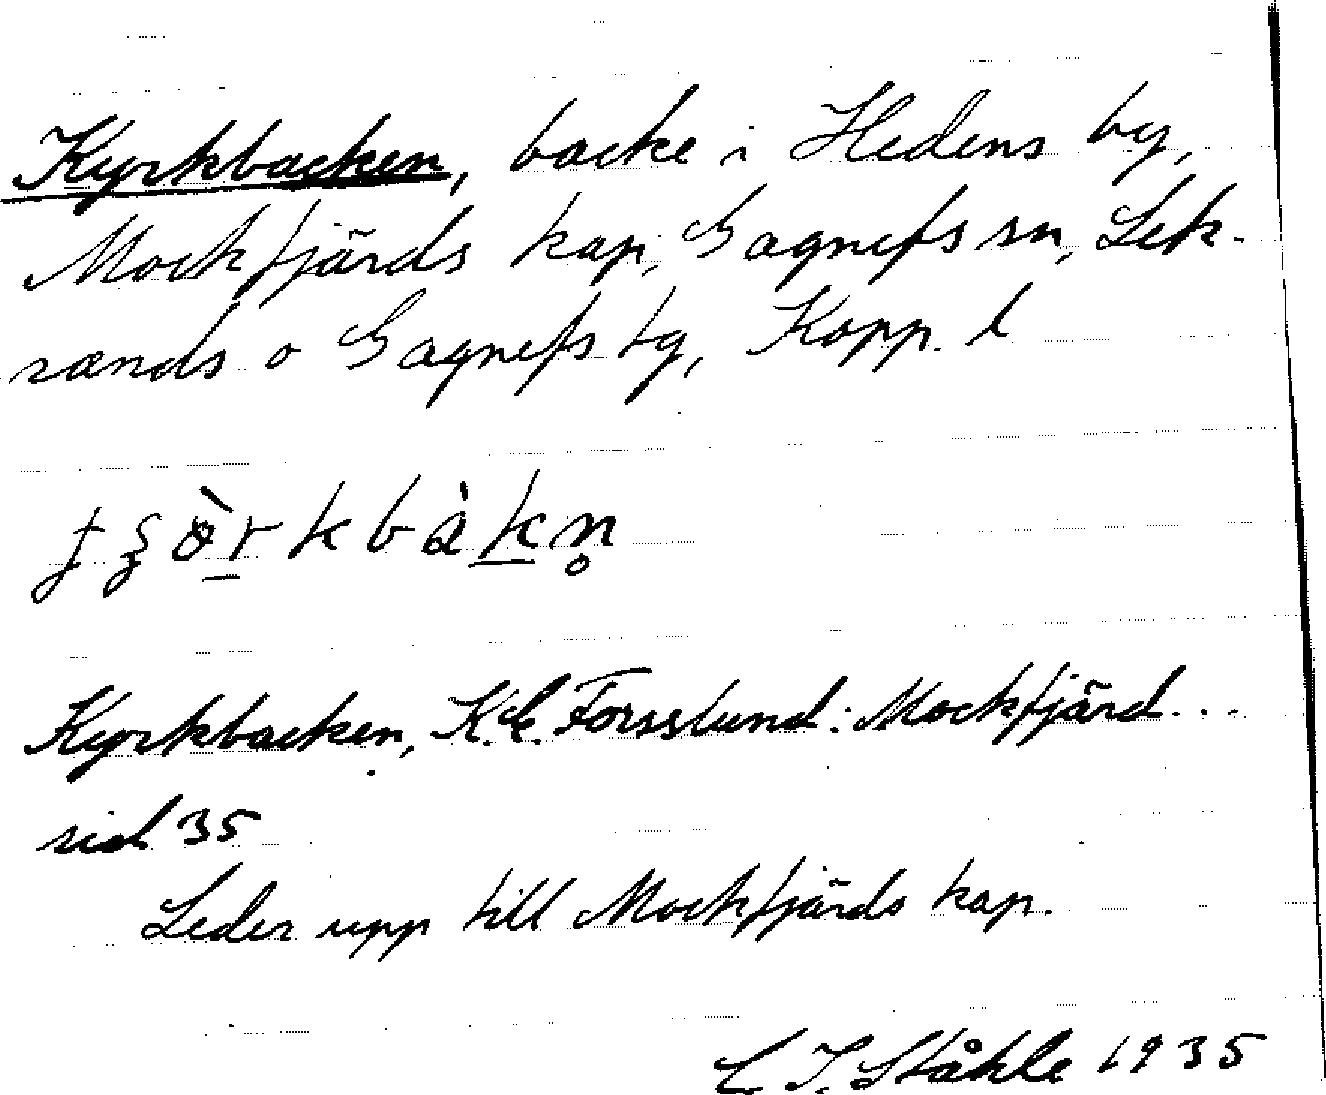 Kyrkbacken, backe i Hedens by,
Mockfjärds kap, Gagnefs sn, Lek-
sands o Gagnefs tg, Kopp. l
Kyrkbacken, K.E. Forsslund: Mockfjärd...
sid 35
Leder upp till Mockfjärds kap.
C. I. Ståhle 1935